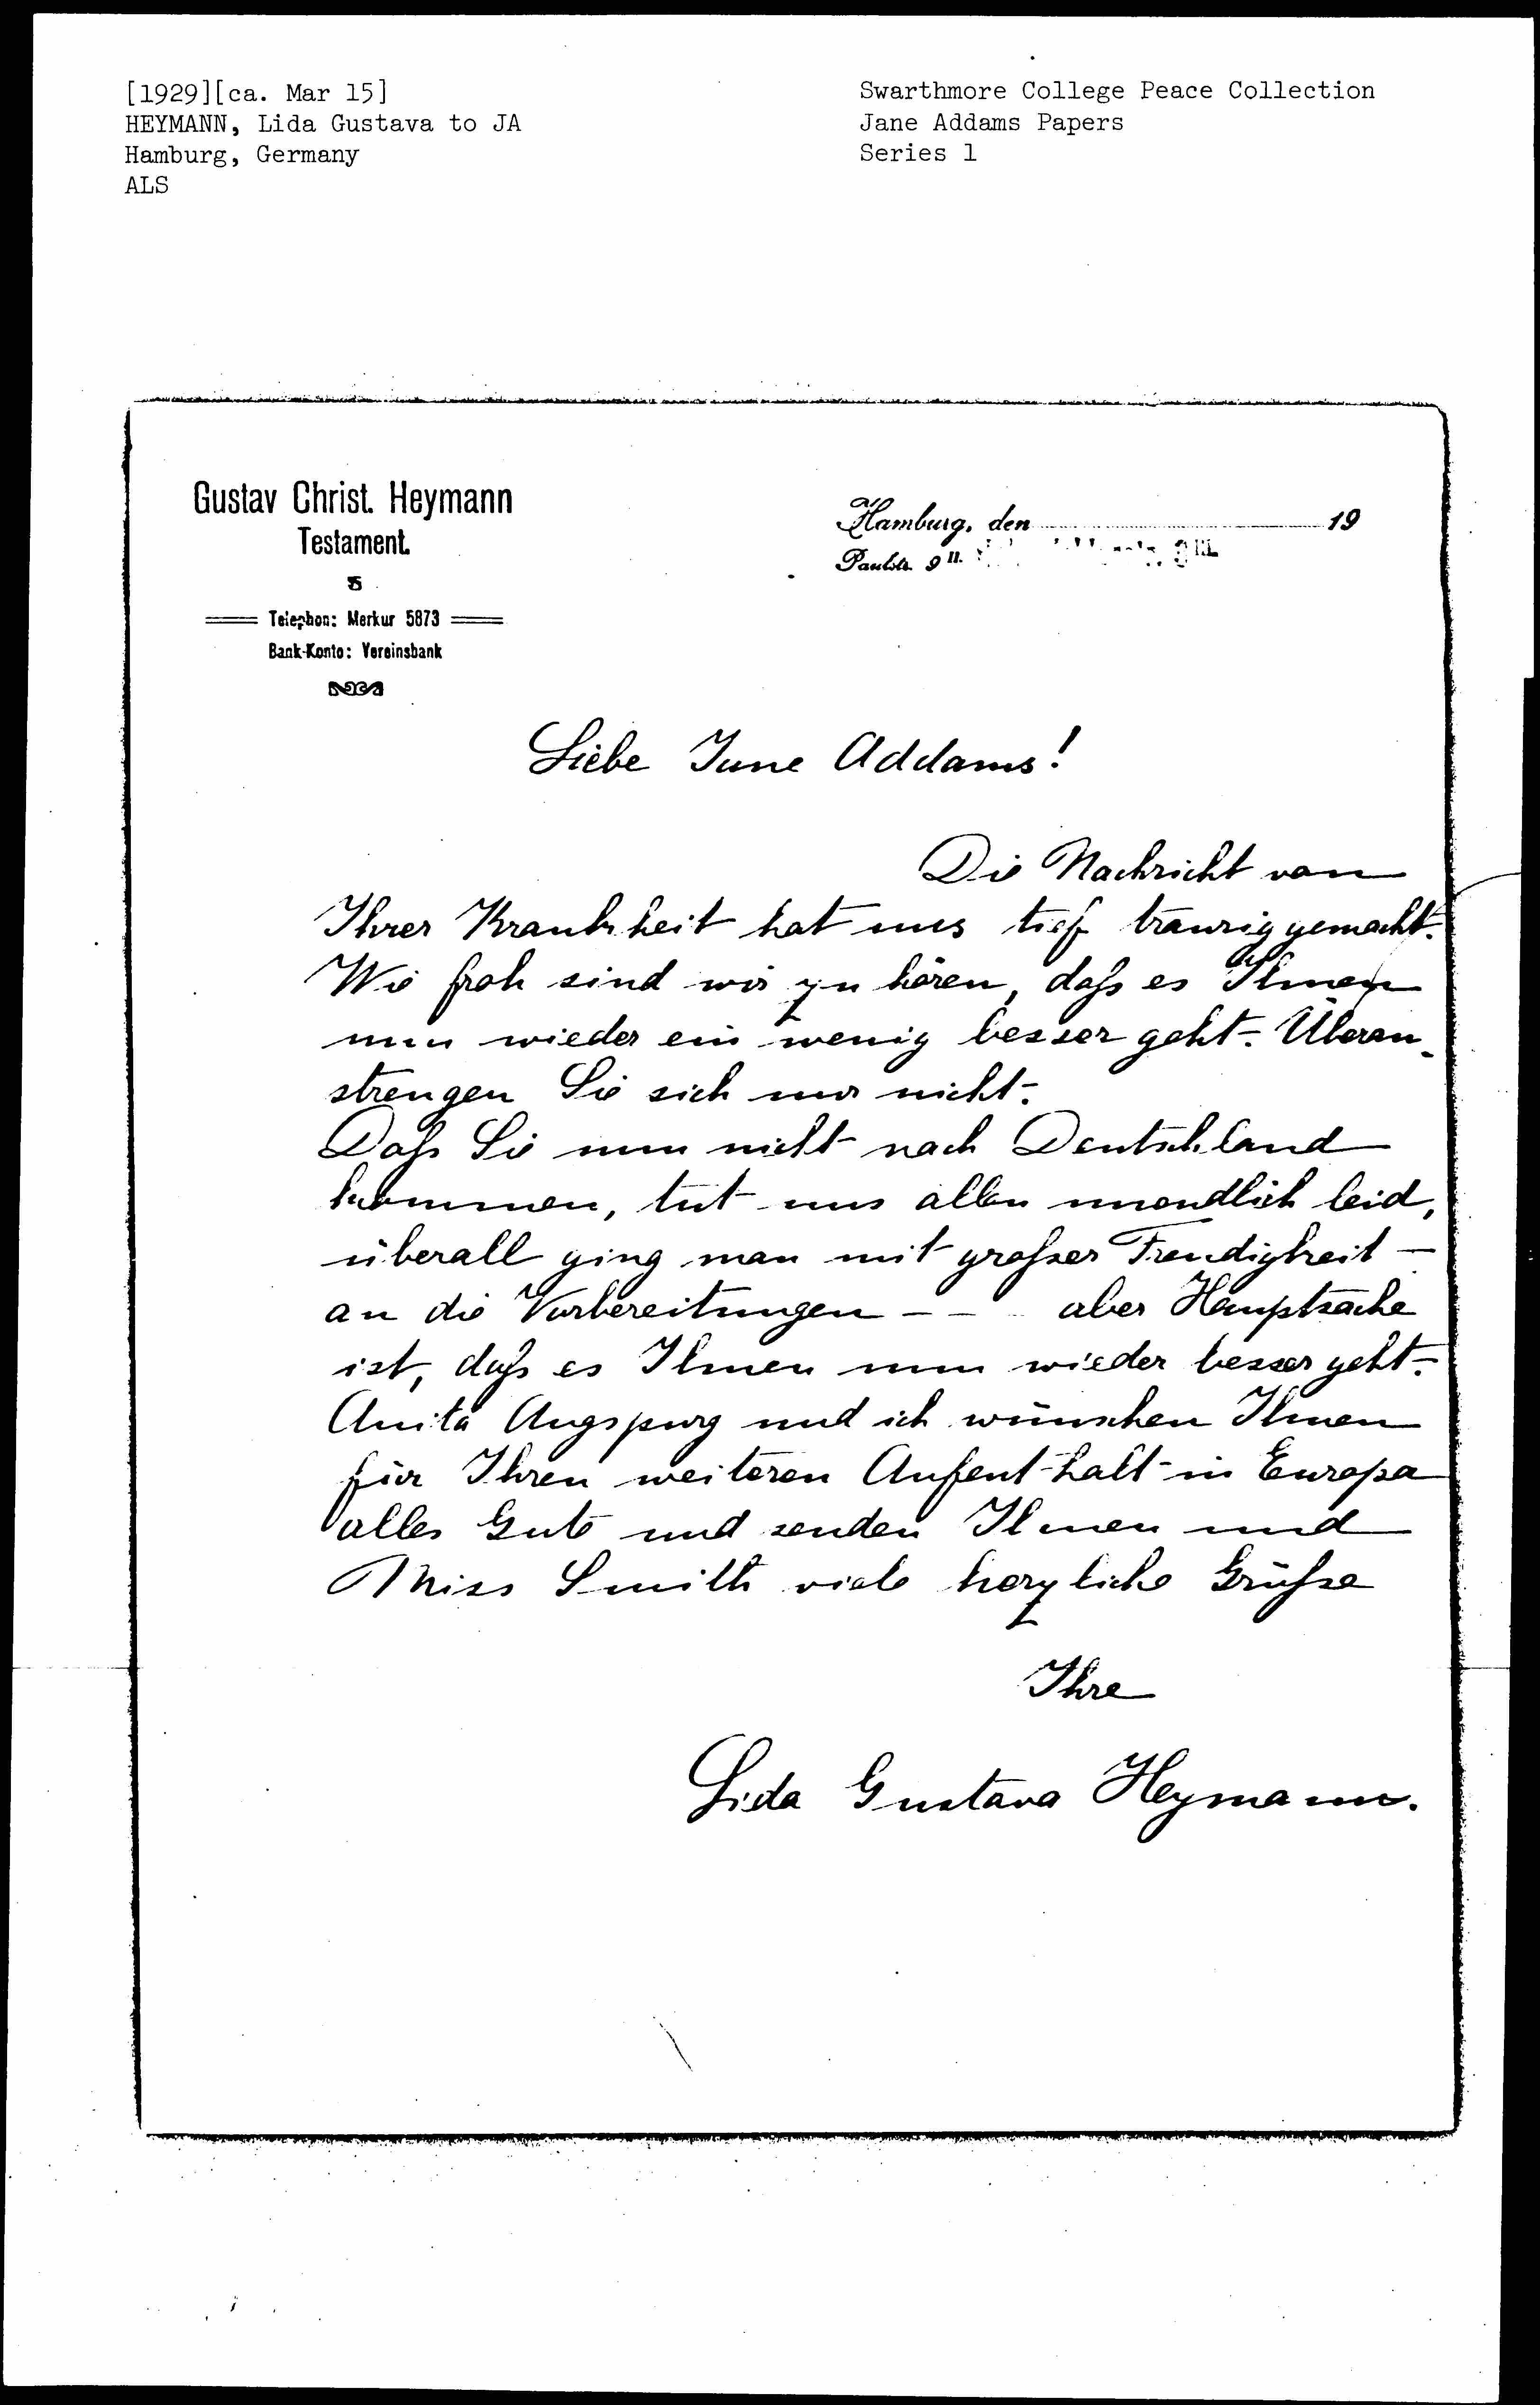 [1929][ca. Mar 15]
HEYMANN, Lida Gustava to JA
Hamburg, Germany
ALS
Swarthmore College Peace Collection
Jane Addams Papers
Series 1
Gustav Christ. Heymann
Testament.
Telephon: Merkur 5873
Bank-Konto: Vereinsbank
Hamburg, den 19
Paulstr. 9 II.
Liebe Jane Addams!
Die Nachricht von
Ihrer Krankheit hat uns tief traurig gemacht.
Wie froh sind wir zu hören, daß es Ihnen
nun wieder ein wenig besser geht. Überan-
strengen Sie sich nur nicht.
Daß Sie nun nicht nach Deutschland
kommen, tut uns allen unendlich leid,
überall ging man mit großer Freudigkeit –
an die Vorbereitungen – – aber Hauptsache
ist, daß es Ihnen nun wieder besser geht.
Anita Augspurg und ich wünschen Ihnen
für Ihren weiteren Aufenthalt in Europa
alles Gute und senden Ihnen und
Miss Smith viele herzliche Grüße
Ihre
Lida Gustava Heymann.